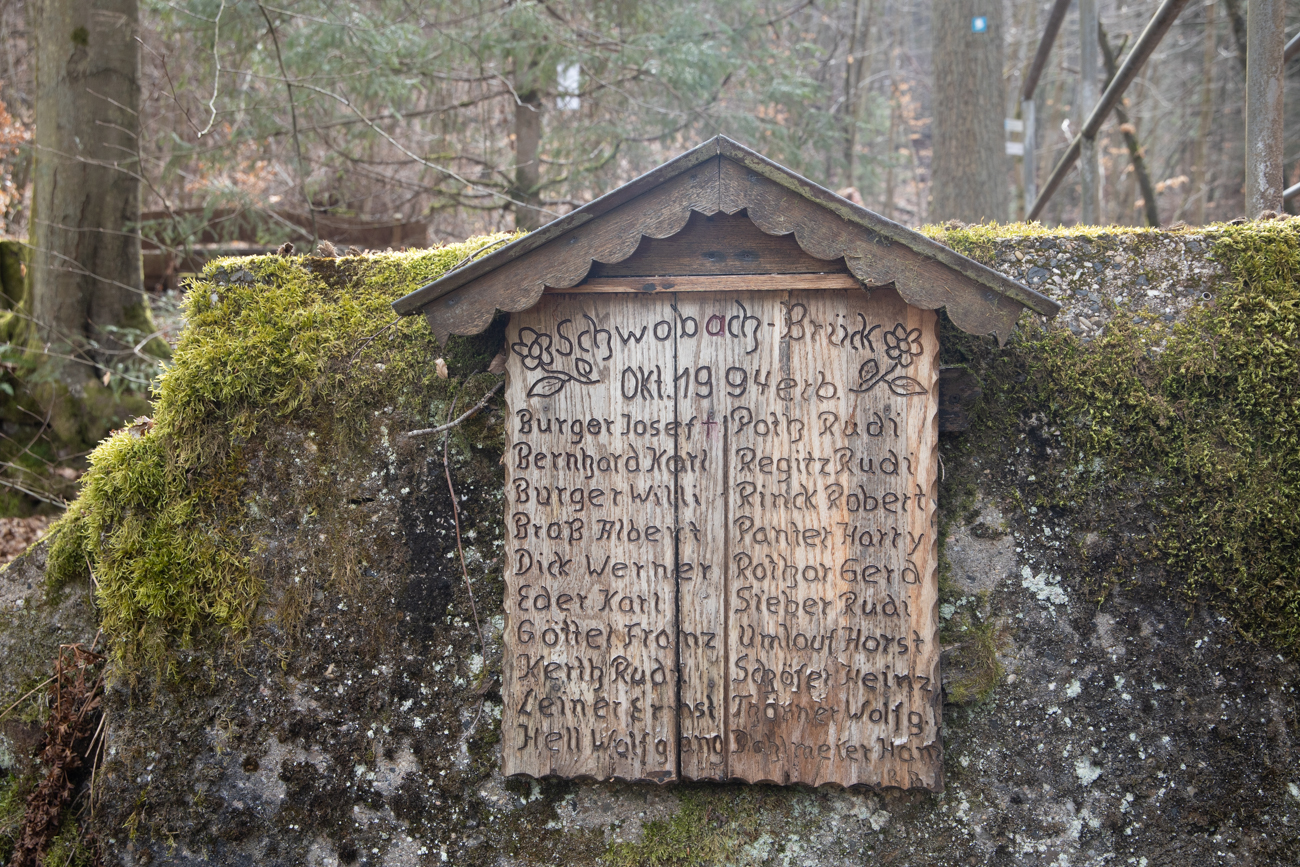 Schwobach-Brück
Okt. 1994 erb.
Burger Josef †
Bernhard Karl
Burger Willi
Braß Albert
Dick Werner
Eder Karl
Göttel Franz
Kerth Rudi
Leiner Ernst
Hell Wolfgang
Poth Rudi
Regitz Rudi
Rinck Robert
Panter Harry
Rothar Gerd
Sieber Rudi
Umlauf Horst
Schäfer Heinz
Wolfg.